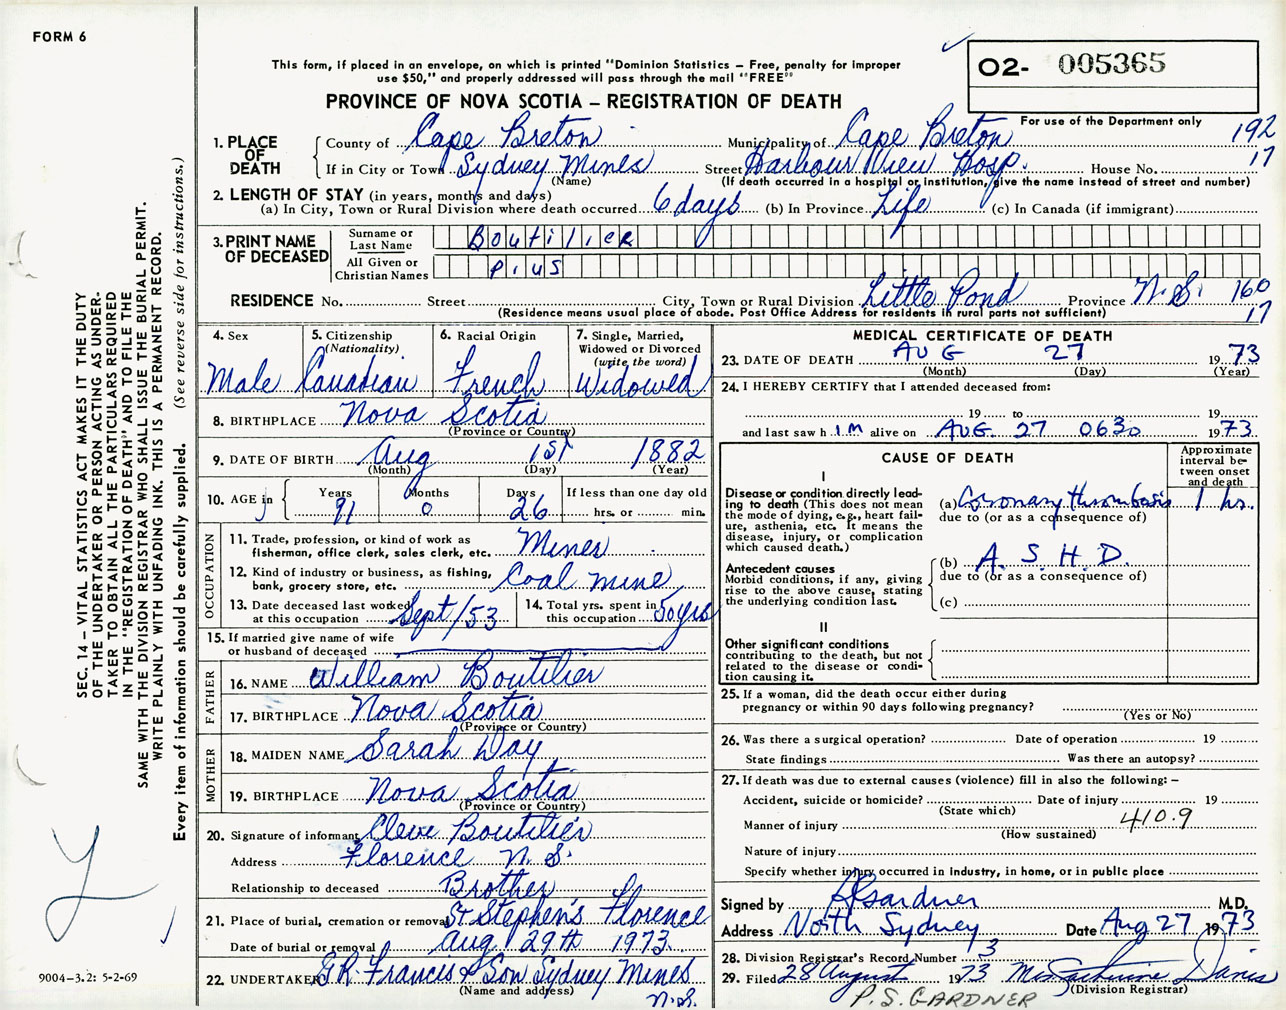 FORM 6
This form, if placed in an envelope, on which is printed "Dominion Statistics – Free, penalty for improper
use $50," and properly addressed will pass through the mail "FREE"
O2- 005365
For use of the Department only
PROVINCE OF NOVA SCOTIA – REGISTRATION OF DEATH
192
17
1. PLACE OF DEATH
County of Cape Breton Municipality of Cape Breton
If in City or Town Sydney Mines Street Harbour View Hosp. House No.
(Name) (If death occurred in a hospital or institution, give the name instead of street and number)
2. LENGTH OF STAY (in years, months and days)
(a) In City, Town or Rural Division where death occurred 6 days (b) In Province Life (c) In Canada (if immigrant)
3. PRINT NAME OF DECEASED
Surname or Last Name Boutilier
All Given or Christian Names Pius
RESIDENCE No. Street City, Town or Rural Division Little Pond Province N.S. 160
17
(Residence means usual place of abode. Post Office Address for residents in rural parts not sufficient)
4. Sex Male
5. Citizenship (Nationality) Canadian
6. Racial Origin French
7. Single, Married, Widowed or Divorced (write the word) Widowed
8. BIRTHPLACE Nova Scotia
(Province or Country)
9. DATE OF BIRTH Aug 1st 1882
(Month) (Day) (Year)
10. AGE in Years 91 Months 0 Days 26 If less than one day old hrs. or min.
OCCUPATION
11. Trade, profession, or kind of work as fisherman, office clerk, sales clerk, etc. Miner
12. Kind of industry or business, as fishing, bank, grocery store, etc. Coal mine
13. Date deceased last worked at this occupation Sept/53
14. Total yrs. spent in this occupation 50 yrs
15. If married give name of wife or husband of deceased
FATHER
16. NAME William Boutilier
17. BIRTHPLACE Nova Scotia
(Province or Country)
MOTHER
18. MAIDEN NAME Sarah Day
19. BIRTHPLACE Nova Scotia
(Province or Country)
20. Signature of informant Cleve Boutilier
Address Florence N.S.
Relationship to deceased Brother
21. Place of burial, cremation or removal St Stephen's Florence
Date of burial or removal Aug 29th 1973
22. UNDERTAKER G.R. Francis & Son Sydney Mines
(Name and address) N.S.
MEDICAL CERTIFICATE OF DEATH
23. DATE OF DEATH AUG 27 1973
(Month) (Day) (Year)
24. I HEREBY CERTIFY that I attended deceased from:
19 to 19
and last saw him alive on AUG. 27 0630 1973
CAUSE OF DEATH
Approximate interval between onset and death
I
Disease or condition directly leading to death (This does not mean the mode of dying, e.g., heart failure, asthenia, etc. It means the disease, injury, or complication which caused death.)
(a) Coronary thrombosis 1 hr.
due to (or as a consequence of)
Antecedent causes
Morbid conditions, if any, giving rise to the above cause, stating the underlying condition last.
(b) A. S. H. D.
due to (or as a consequence of)
(c)
II
Other significant conditions
contributing to the death, but not related to the disease or condition causing it.
25. If a woman, did the death occur either during
pregnancy or within 90 days following pregnancy?
(Yes or No)
26. Was there a surgical operation? Date of operation 19
State findings Was there an autopsy?
27. If death was due to external causes (violence) fill in also the following: –
Accident, suicide or homicide? Date of injury 19
(State which)
Manner of injury 410.9
(How sustained)
Nature of injury
Specify whether injury occurred in industry, in home, or in public place
Signed by Gardner M.D.
Address North Sydney Date Aug 27 1973
28. Division Registrar's Record Number 3
29. Filed 28 August 1973 Davis
(Division Registrar)
P.S. GARDNER
SEC. 14 – VITAL STATISTICS ACT MAKES IT THE DUTY
OF THE UNDERTAKER OR PERSON ACTING AS UNDER-
TAKER TO OBTAIN ALL THE PARTICULARS REQUIRED
IN THE "REGISTRATION OF DEATH" AND TO FILE THE
SAME WITH THE DIVISION REGISTRAR WHO SHALL ISSUE THE BURIAL PERMIT.
WRITE PLAINLY WITH UNFADING INK. THIS IS A PERMANENT RECORD.
Every item of information should be carefully supplied. (See reverse side for instructions.)
9004-3.2: 5-2-69